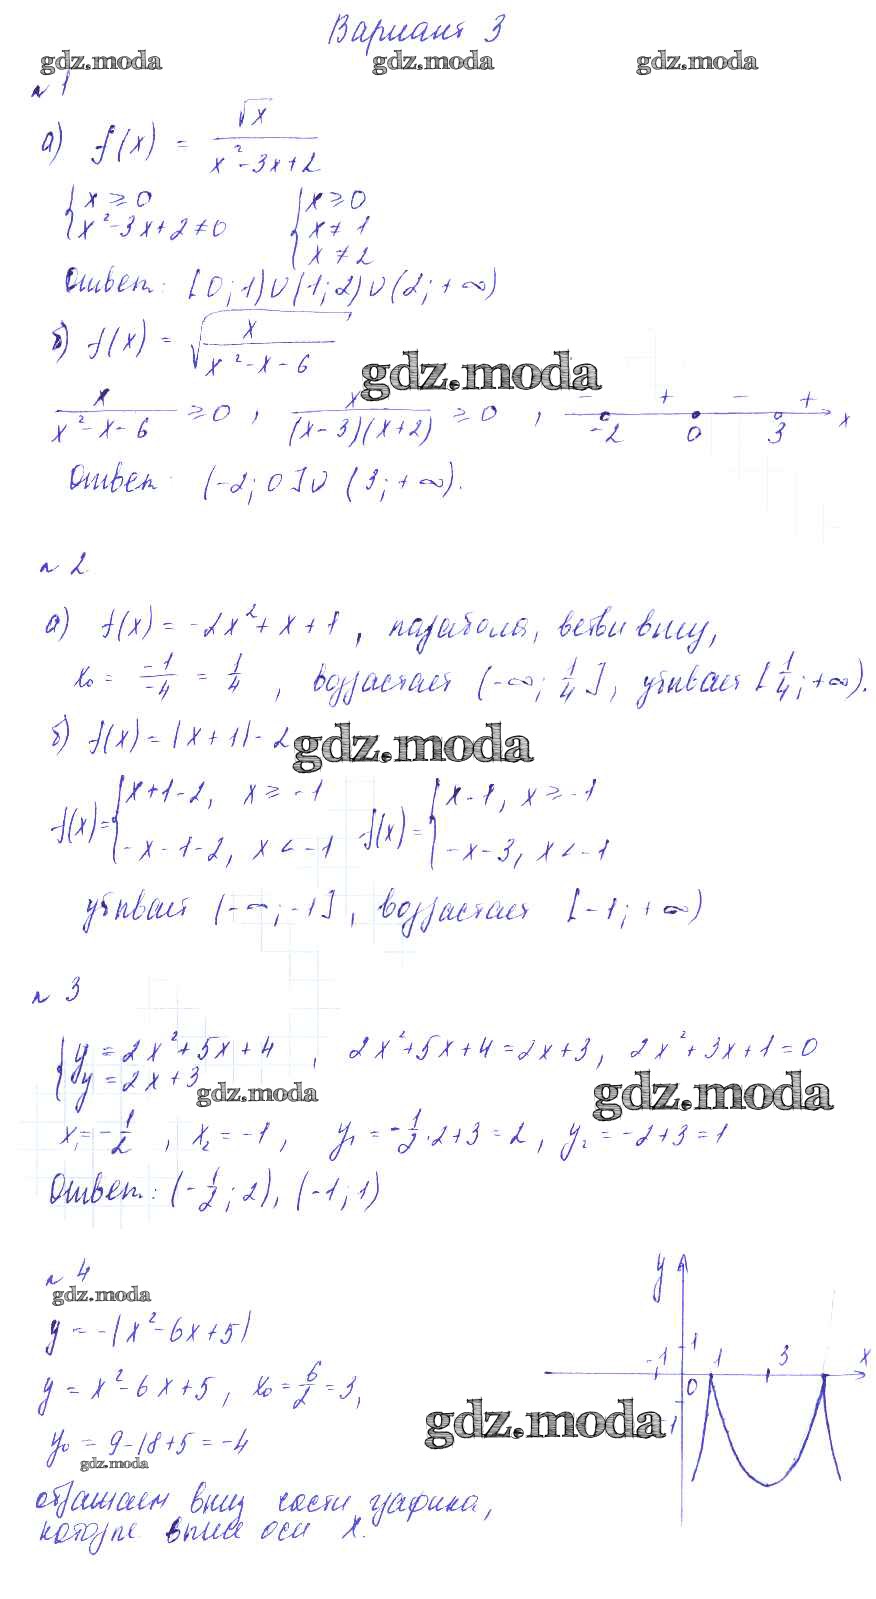 Вариант 3
gdz.moda gdz.moda gdz.moda
№ 1
а) f(x) = √x / (x² - 3x + 2)
{ x ≥ 0 { x ≥ 0
x² - 3x + 2 ≠ 0 x ≠ 1
x ≠ 2
Ответ: [0; 1) ∪ (1; 2) ∪ (2; +∞)
б) f(x) = √(x / (x² - x - 6))
gdz.moda
x / (x² - x - 6) ≥ 0 , x / ((x - 3)(x + 2)) ≥ 0 , - + - + x
-2 0 3
Ответ: (-2; 0] ∪ (3; +∞).
№ 2
а) f(x) = -2x² + x + 1 , парабола, ветви вниз,
x₀ = -1/-4 = 1/4 , возрастает (-∞; 1/4], убывает [1/4; +∞).
б) f(x) = |x + 1| - 2
gdz.moda
f(x) = { x + 1 - 2, x ≥ -1 f(x) = { x - 1, x ≥ -1
-x - 1 - 2, x < -1 -x - 3, x < -1
убывает (-∞; -1], возрастает [-1; +∞)
№ 3
{ y = 2x² + 5x + 4 , 2x² + 5x + 4 = 2x + 3, 2x² + 3x + 1 = 0
y = 2x + 3
gdz.moda gdz.moda
x₁ = -1/2 , x₂ = -1 , y₁ = -1/2 · 2 + 3 = 2 , y₂ = -2 + 3 = 1
Ответ: (-1/2; 2), (-1; 1)
№ 4
gdz.moda
y = -|x² - 6x + 5|
y = x² - 6x + 5 , x₀ = 6/2 = 3,
y₀ = 9 - 18 + 5 = -4
gdz.moda
отражаем вниз части графика,
которые выше оси x.
y
-1 1 1 3 x
0
-1
gdz.moda